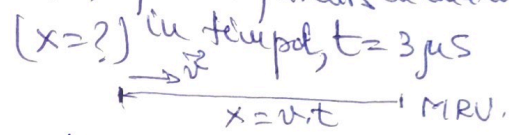 (x=?) în timpul, t = 3 μs
v⃗
x = v.t MRU.